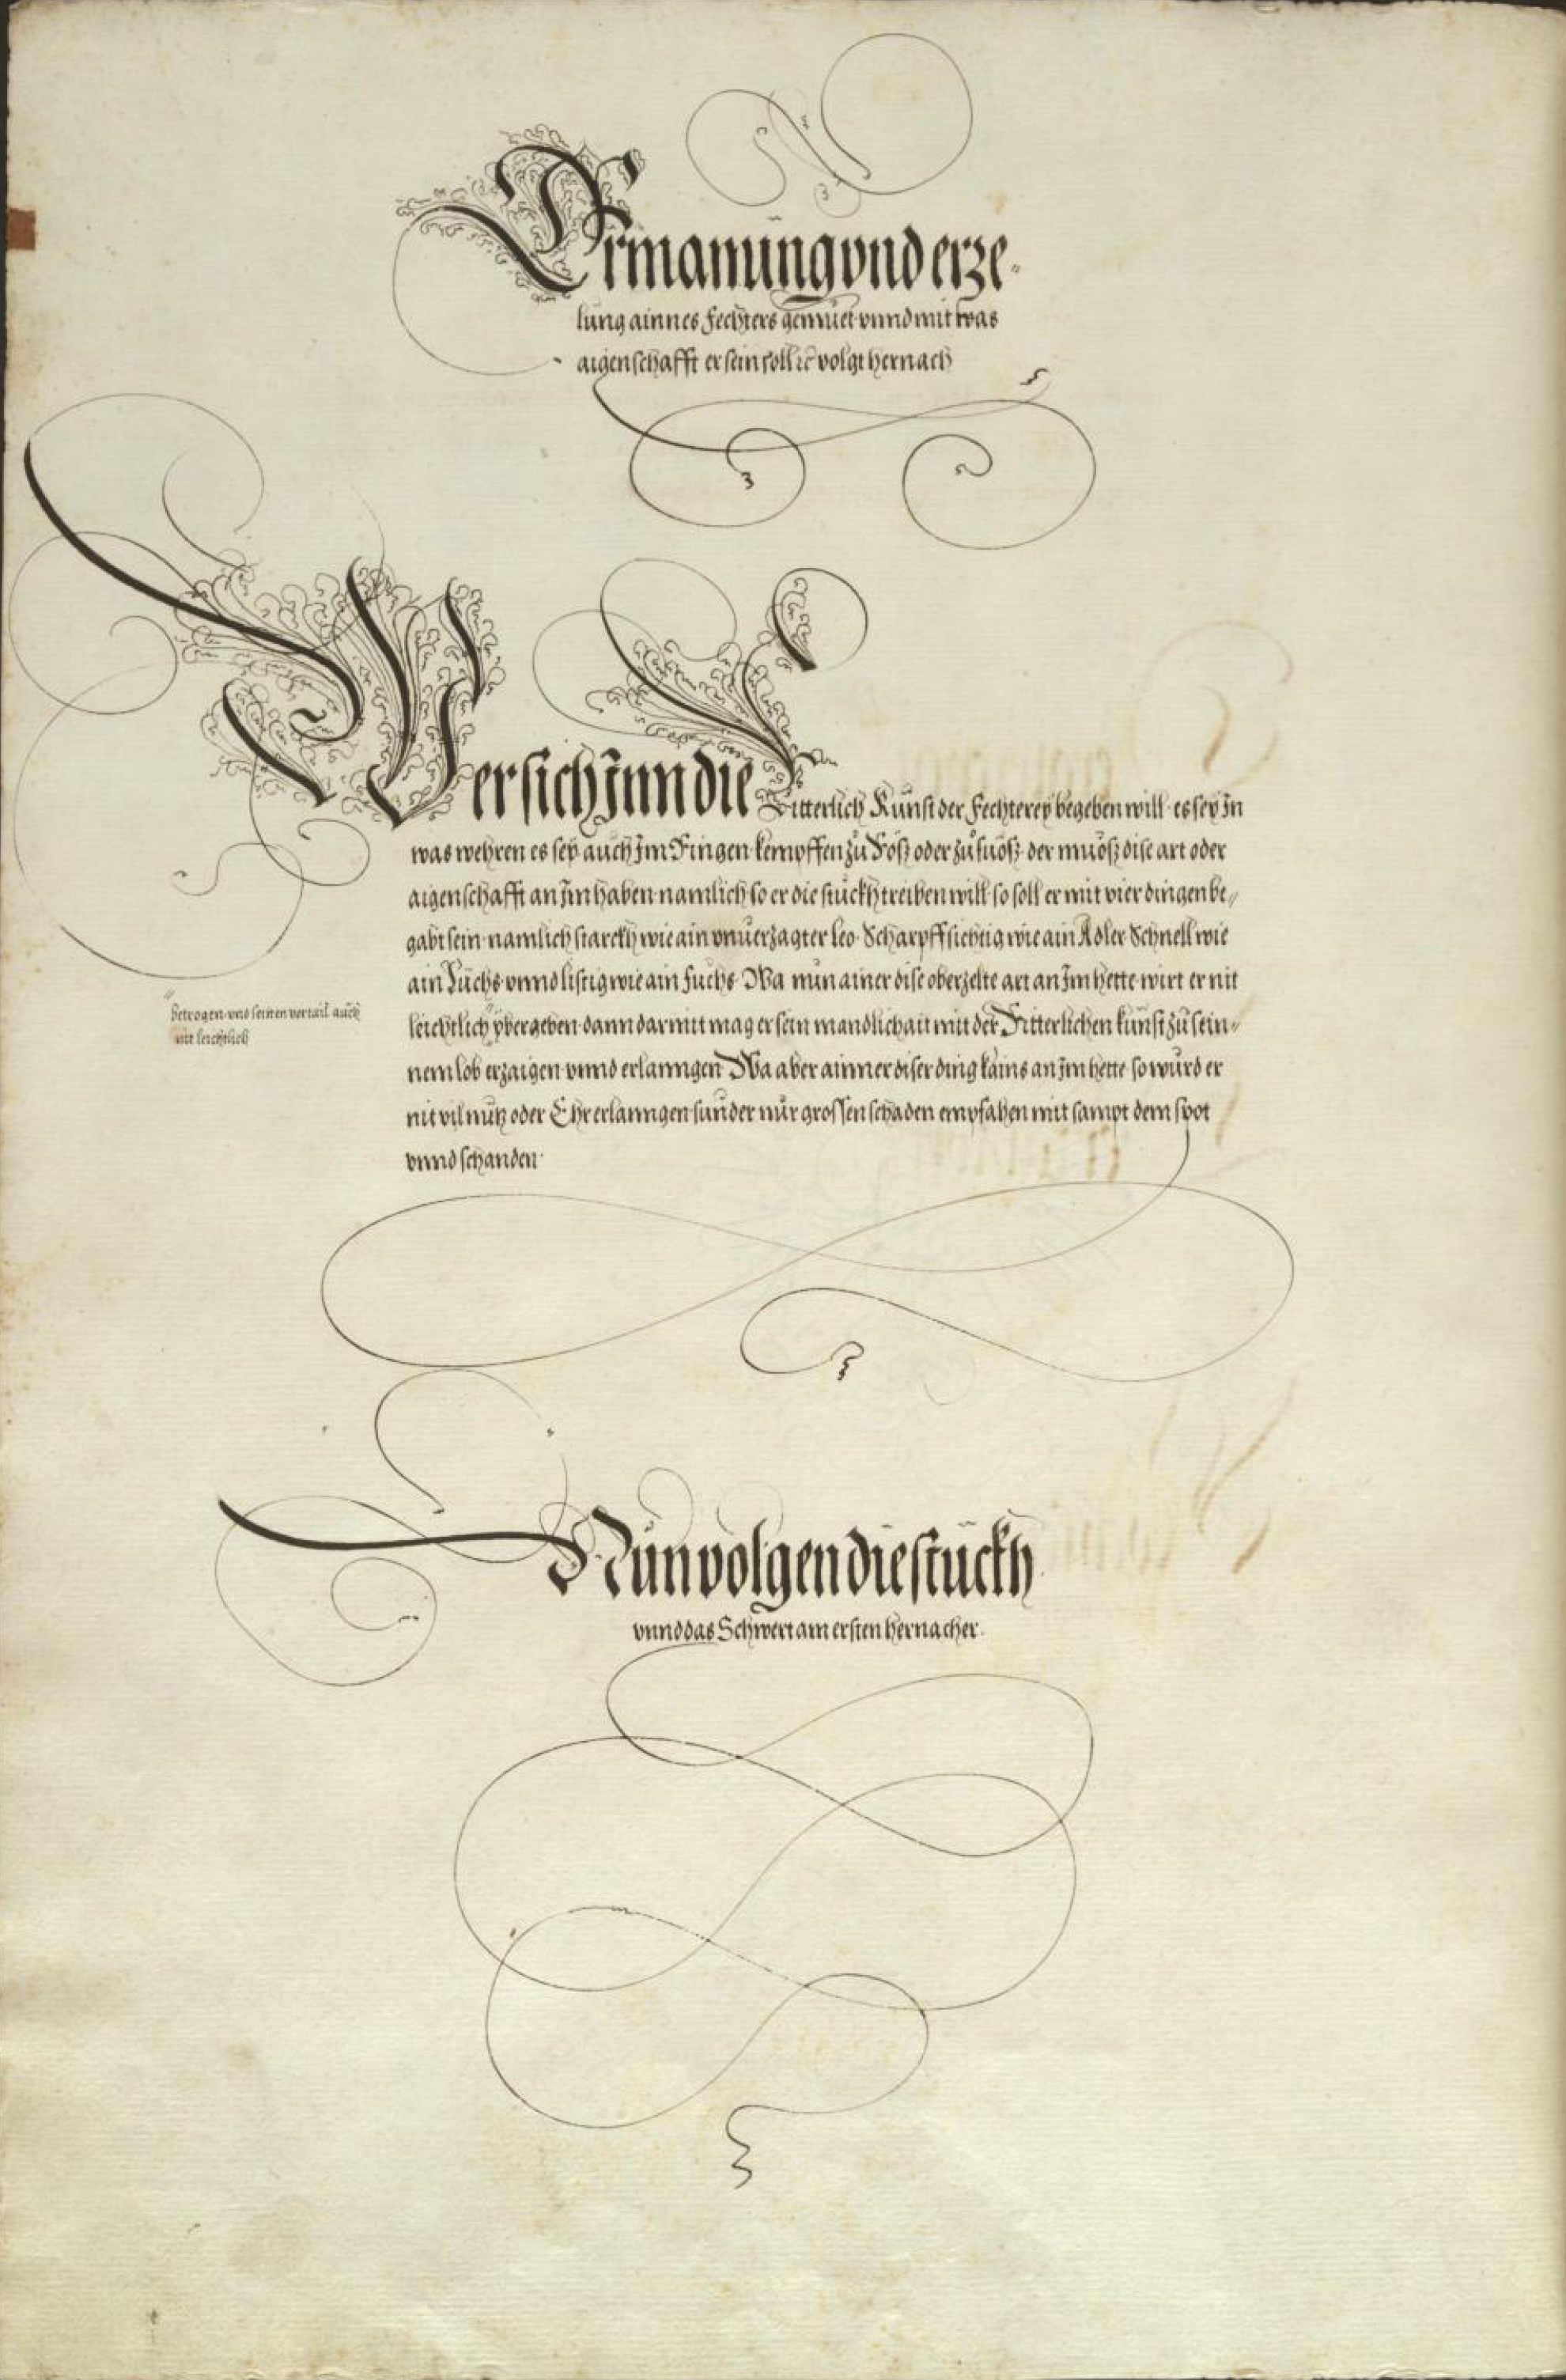 Ermanung vnd erze-
lung ainnes Fechters gemuet vnnd mit was
aigenschafft er sein soll ꝛc volgt hernach
Wer sich Inn die Ritterlich Kunst der Fechterey begeben will es sey In
was wehren es sey auch Im Ringen kempffen zu Roß oder zu fuoß der muoß dise art oder
aigenschafft an Im haben namlich so er die stuckh treiben will so soll er mit vier dingen be-
gabt sein namlich starckh wie ain vnuerzagter Leo Scharpffsichtig wie ain Adler Schnell wie
ain Luchs vnnd listig wie ain fuchs Wa nun ainer dise oberzelte art an Im hette wirt er nit
betrogen vnd seinen vortail auch
nit leichtlich
leichtlich ybergeben dann darmit mag er sein mandlichait mit der Ritterlichen kunst zu sein-
nem lob erzaigen vnnd erlanngen Wa aber ainner diser ding kains an Im hette so wurd er
nit vil nutz oder Ehr erlanngen sunder nur grossen schaden empfahen mit sampt dem spot
vnnd schanden
Nun volgen die stuckh
vnnd das Schwert am ersten hernacher.